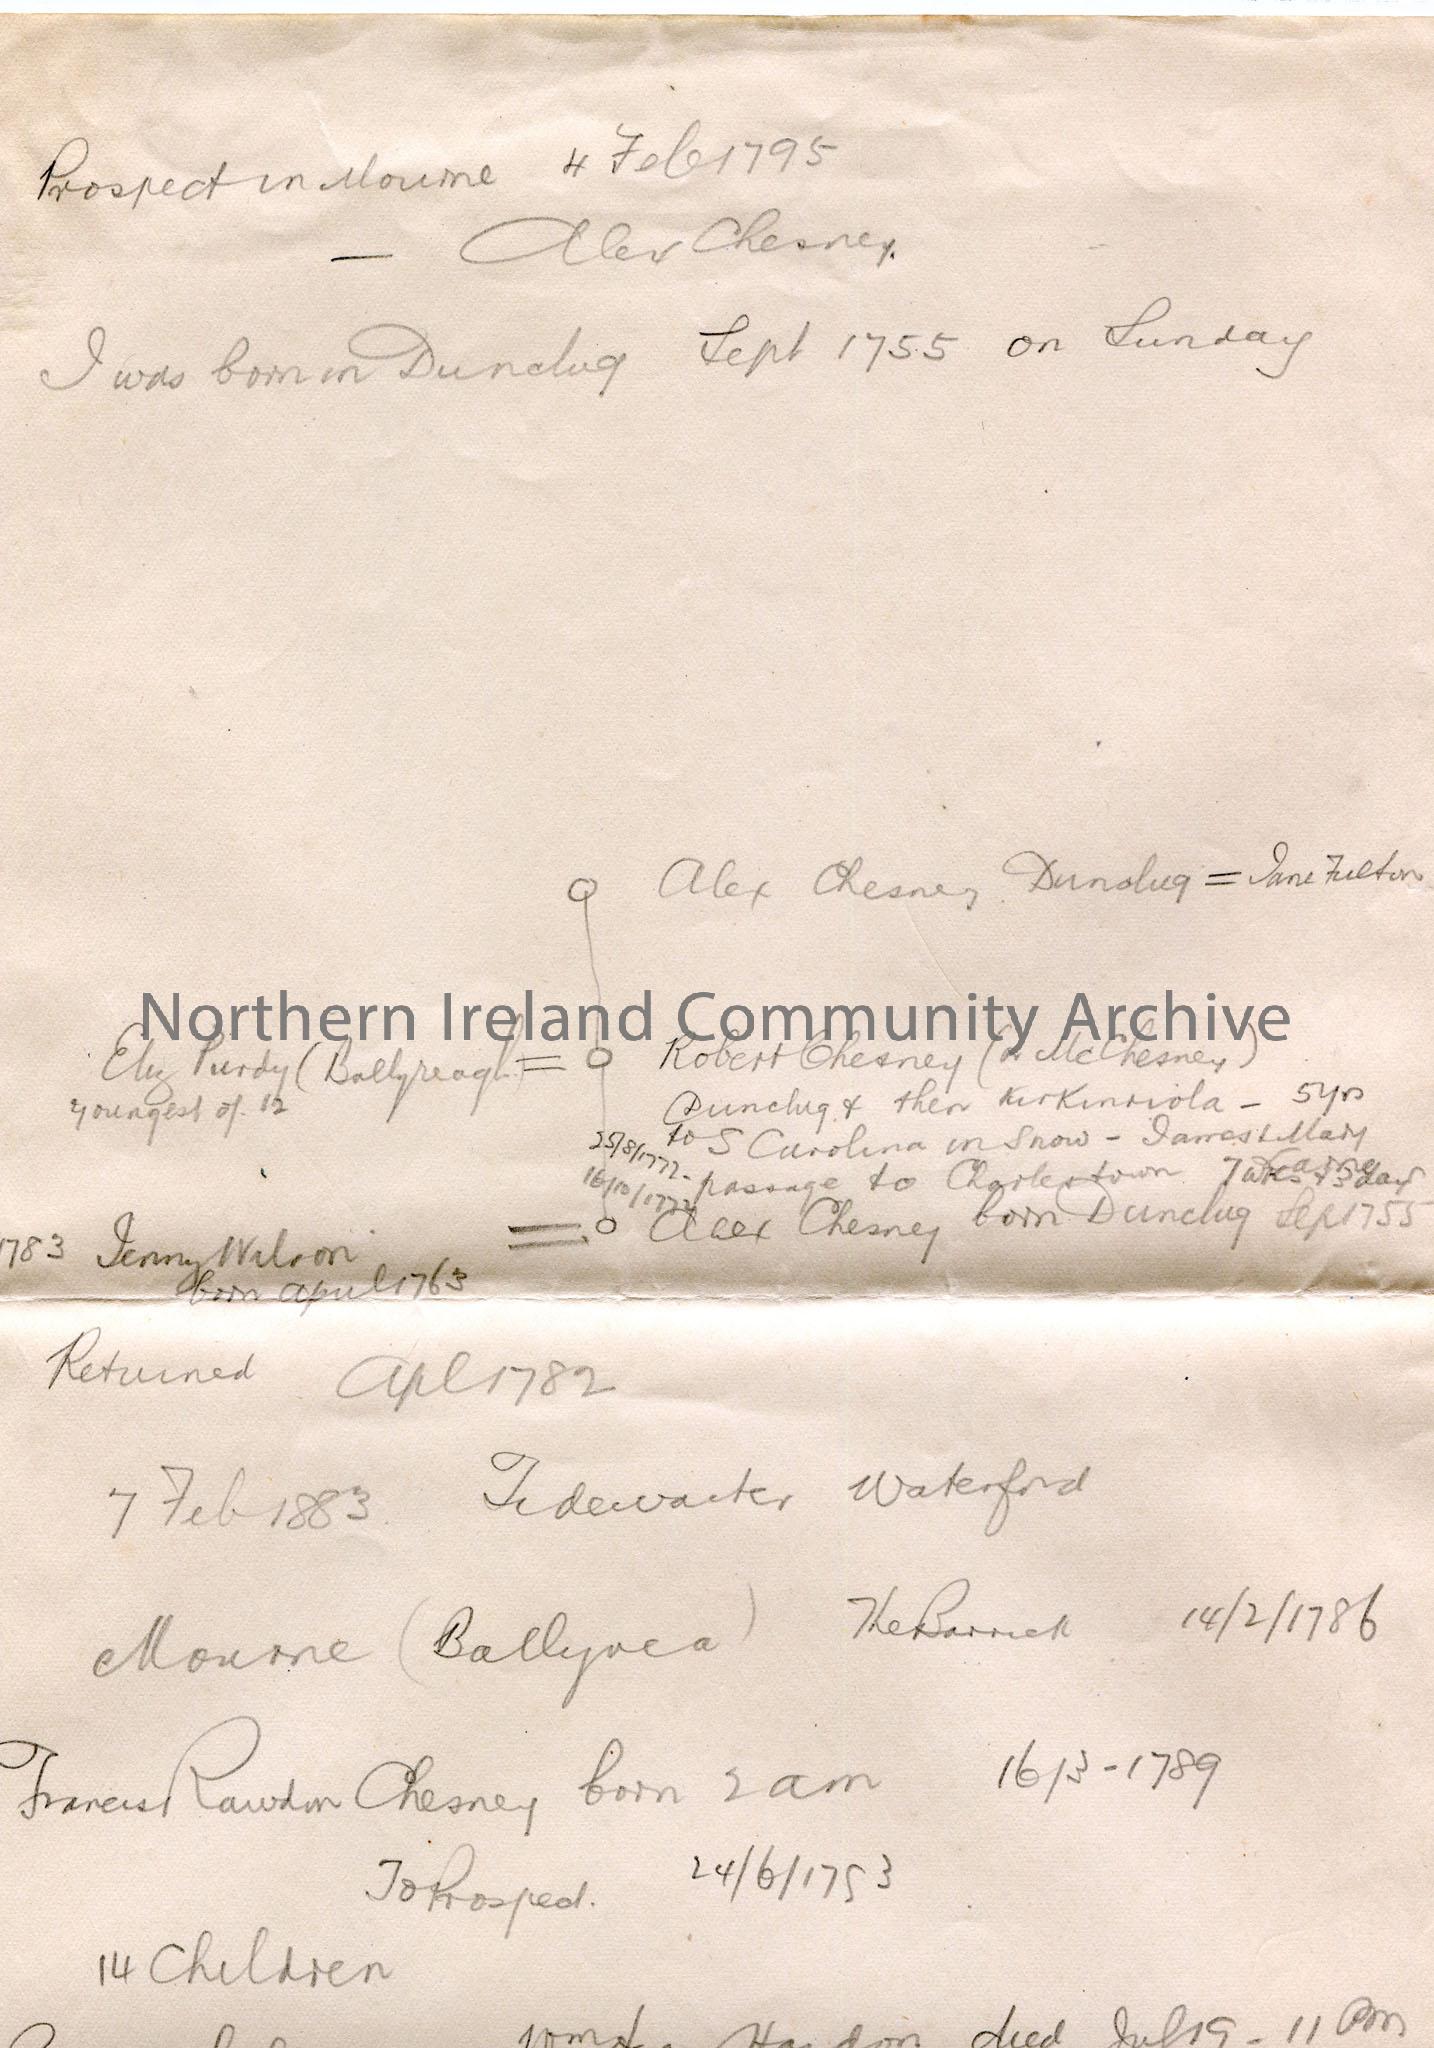 Prospect in Mourne 4 Feb 1795
— Alex Chesney.
I was born in Dunclug Sept 1755 on Sunday
Alex Chesney Dunclug = Jane Fulton
Northern Ireland Community Archive
Eliz Purdy (Ballyreagh) = Robert Chesney (or McChesney)
youngest of 12
Dunclug & then Kirkinriola - 5 yrs
25/8/1772 - to S Carolina in Snow - James & Mary
Larne
16/10/1772 passage to Charlestown 7 wks & 3 days
1783 Jenny Wilson = Alex Chesney born Dunclug Sep 1755
born April 1763
Returned Apl 1782
7 Feb 1883. Tidewaiter Waterford
Mourne (Ballyvea) The Barrack 14/2/1786
Francis Rawdon Chesney born 2 am 16/3-1789
To Prospect. 24/6/1793
14 Children
died Jul 19 - 11 Pm